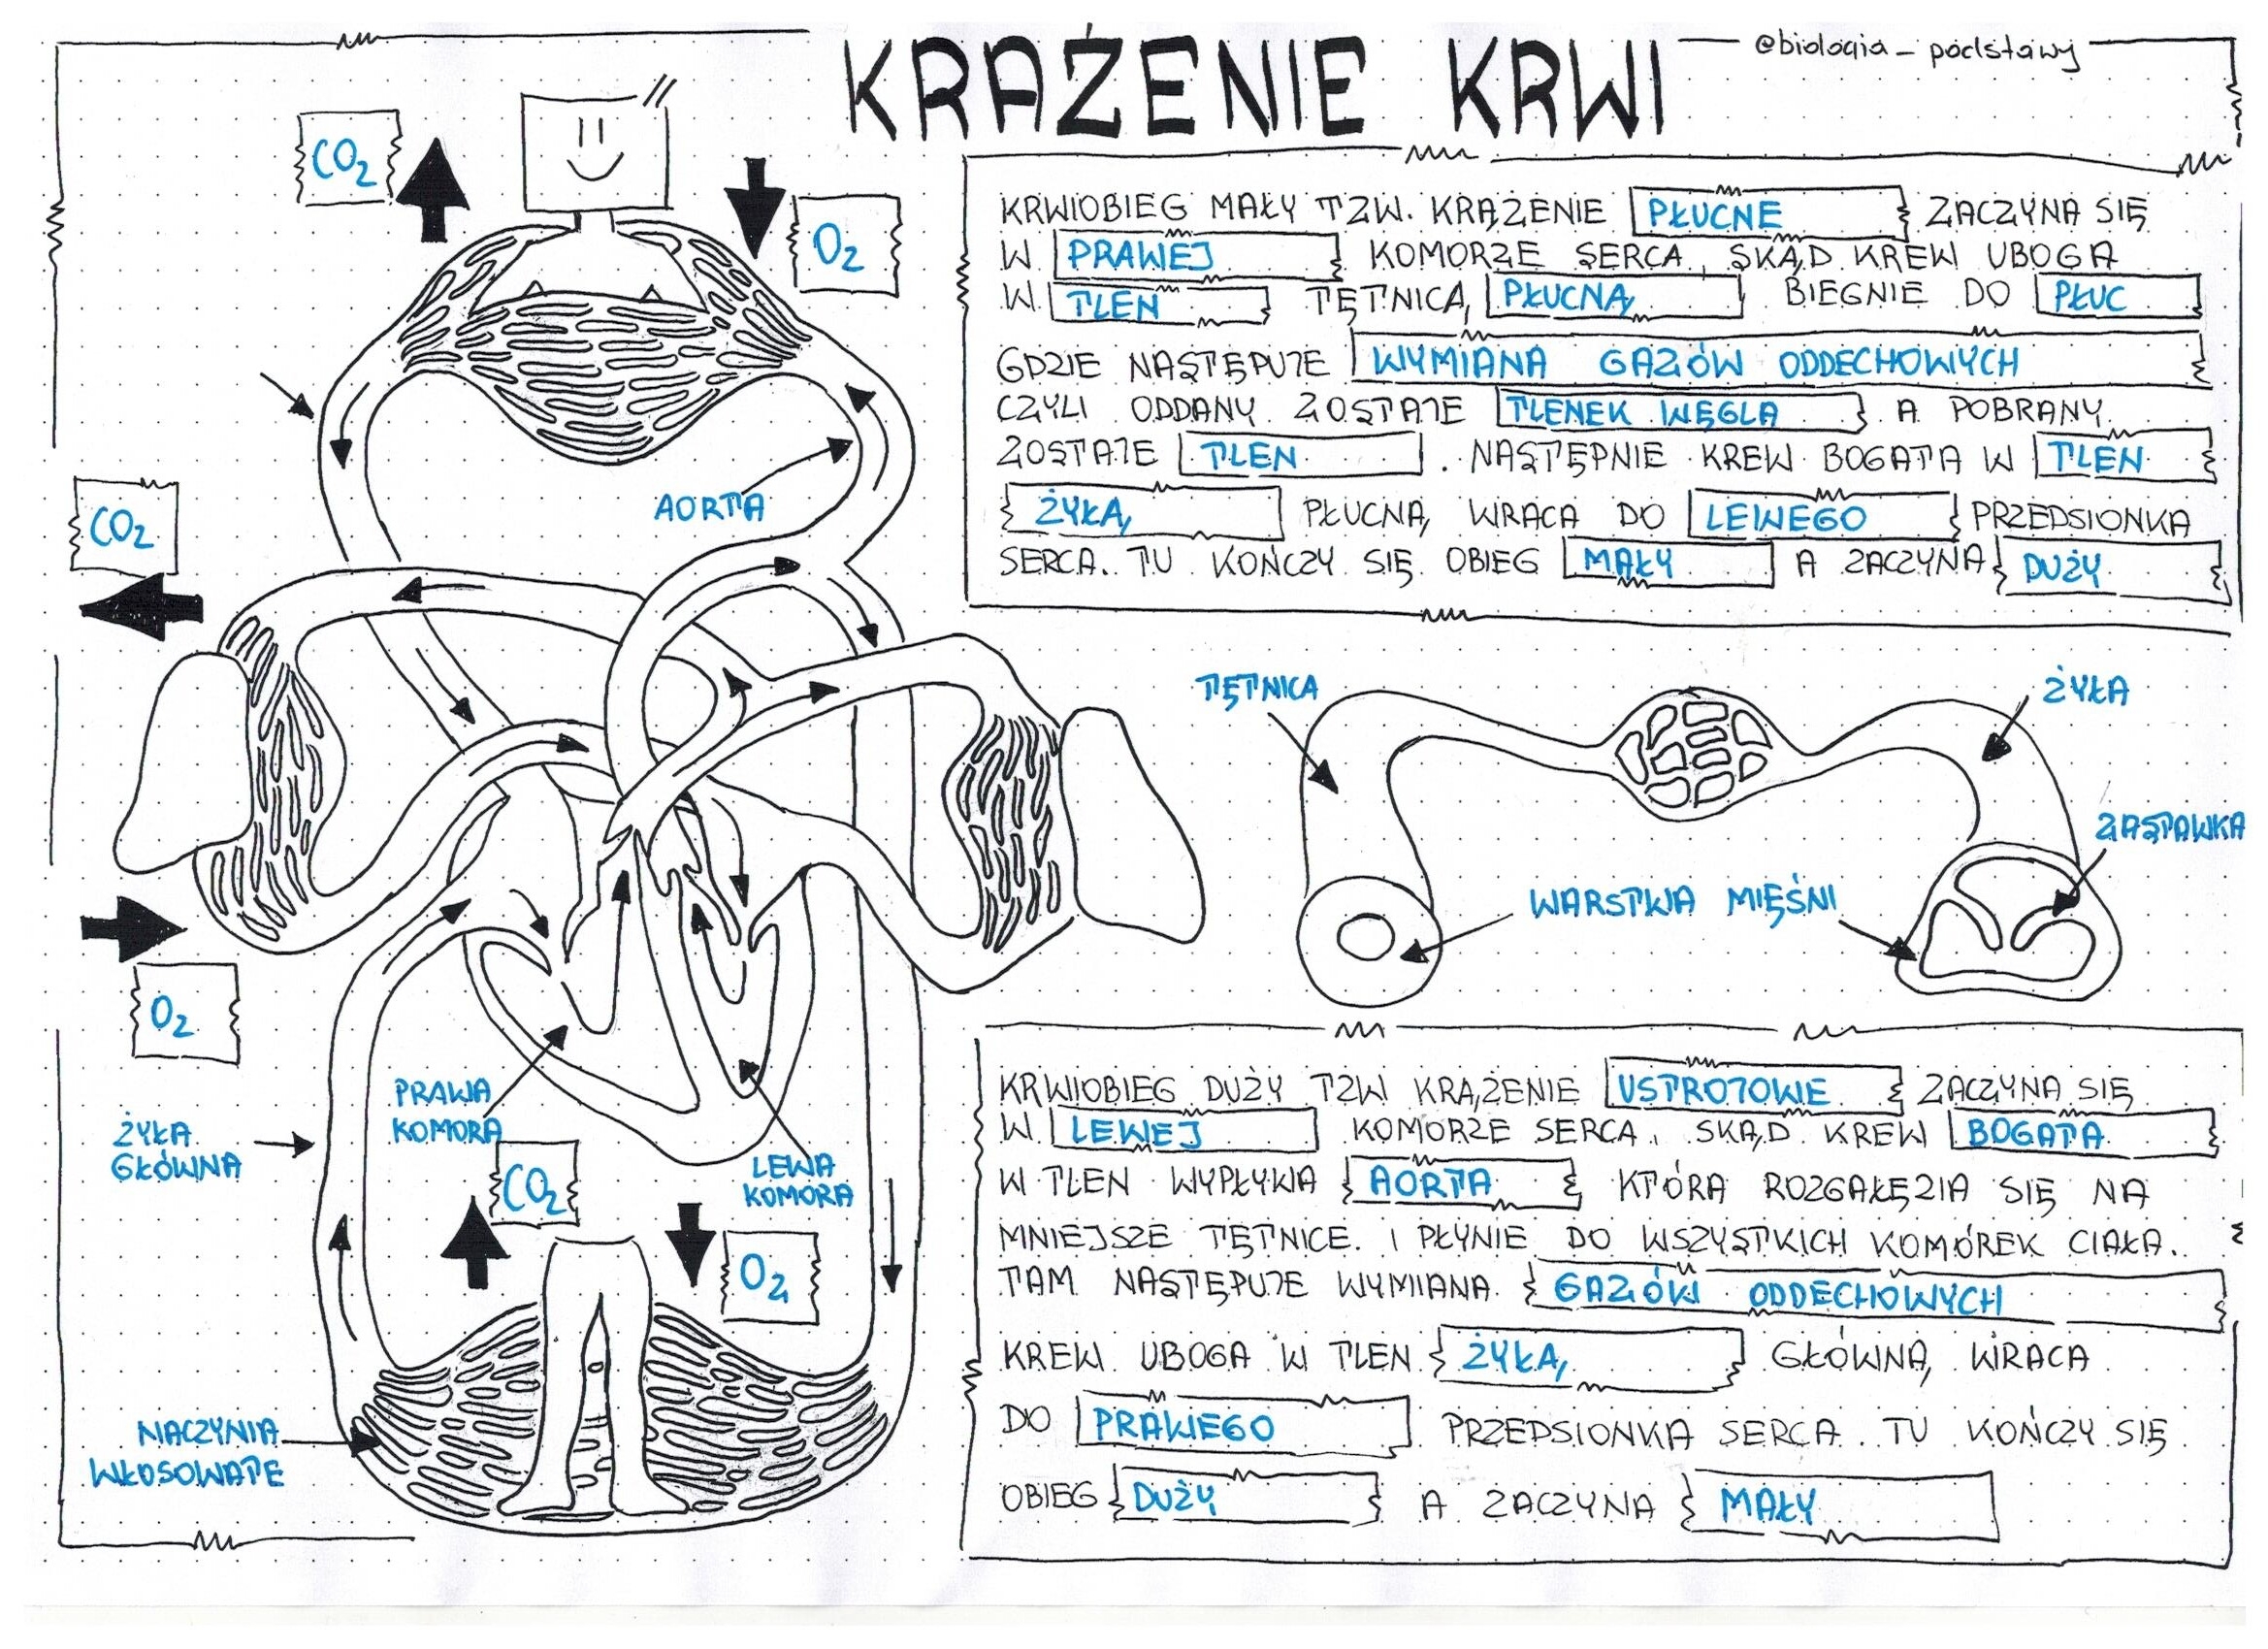 KRĄŻENIE KRWI
@biologia_podstawy
CO2
O2
KRWIOBIEG MAŁY TZW. KRĄŻENIE PŁUCNE ZACZYNA SIĘ
W PRAWEJ KOMORZE SERCA, SKĄD KREW UBOGA
W TLEN TĘTNICĄ PŁUCNĄ BIEGNIE DO PŁUC
GDZIE NASTĘPUJE WYMIANA GAZÓW ODDECHOWYCH
CZYLI ODDANY ZOSTAJE TLENEK WĘGLA A POBRANY
ZOSTAJE TLEN. NASTĘPNIE KREW BOGATA W TLEN
ŻYŁĄ PŁUCNĄ WRACA DO LEWEGO PRZEDSIONKA
SERCA. TU KOŃCZY SIĘ OBIEG MAŁY A ZACZYNA DUŻY
AORTA
CO2
O2
TĘTNICA
ŻYŁA
ZASTAWKA
WARSTWA MIĘŚNI
PRAWA
KOMORA
ŻYŁA
GŁÓWNA
LEWA
KOMORA
CO2
O2
NACZYNIA
WŁOSOWATE
KRWIOBIEG DUŻY TZW KRĄŻENIE USTROJOWE ZACZYNA SIĘ
W LEWEJ KOMORZE SERCA, SKĄD KREW BOGATA
W TLEN WYPŁYWA AORTA KTÓRA ROZGAŁĘZIA SIĘ NA
MNIEJSZE TĘTNICE I PŁYNIE DO WSZYSTKICH KOMÓREK CIAŁA.
TAM NASTĘPUJE WYMIANA GAZÓW ODDECHOWYCH
KREW UBOGA W TLEN ŻYŁĄ GŁÓWNĄ WRACA
DO PRAWEGO PRZEDSIONKA SERCA. TU KOŃCZY SIĘ
OBIEG DUŻY A ZACZYNA MAŁY